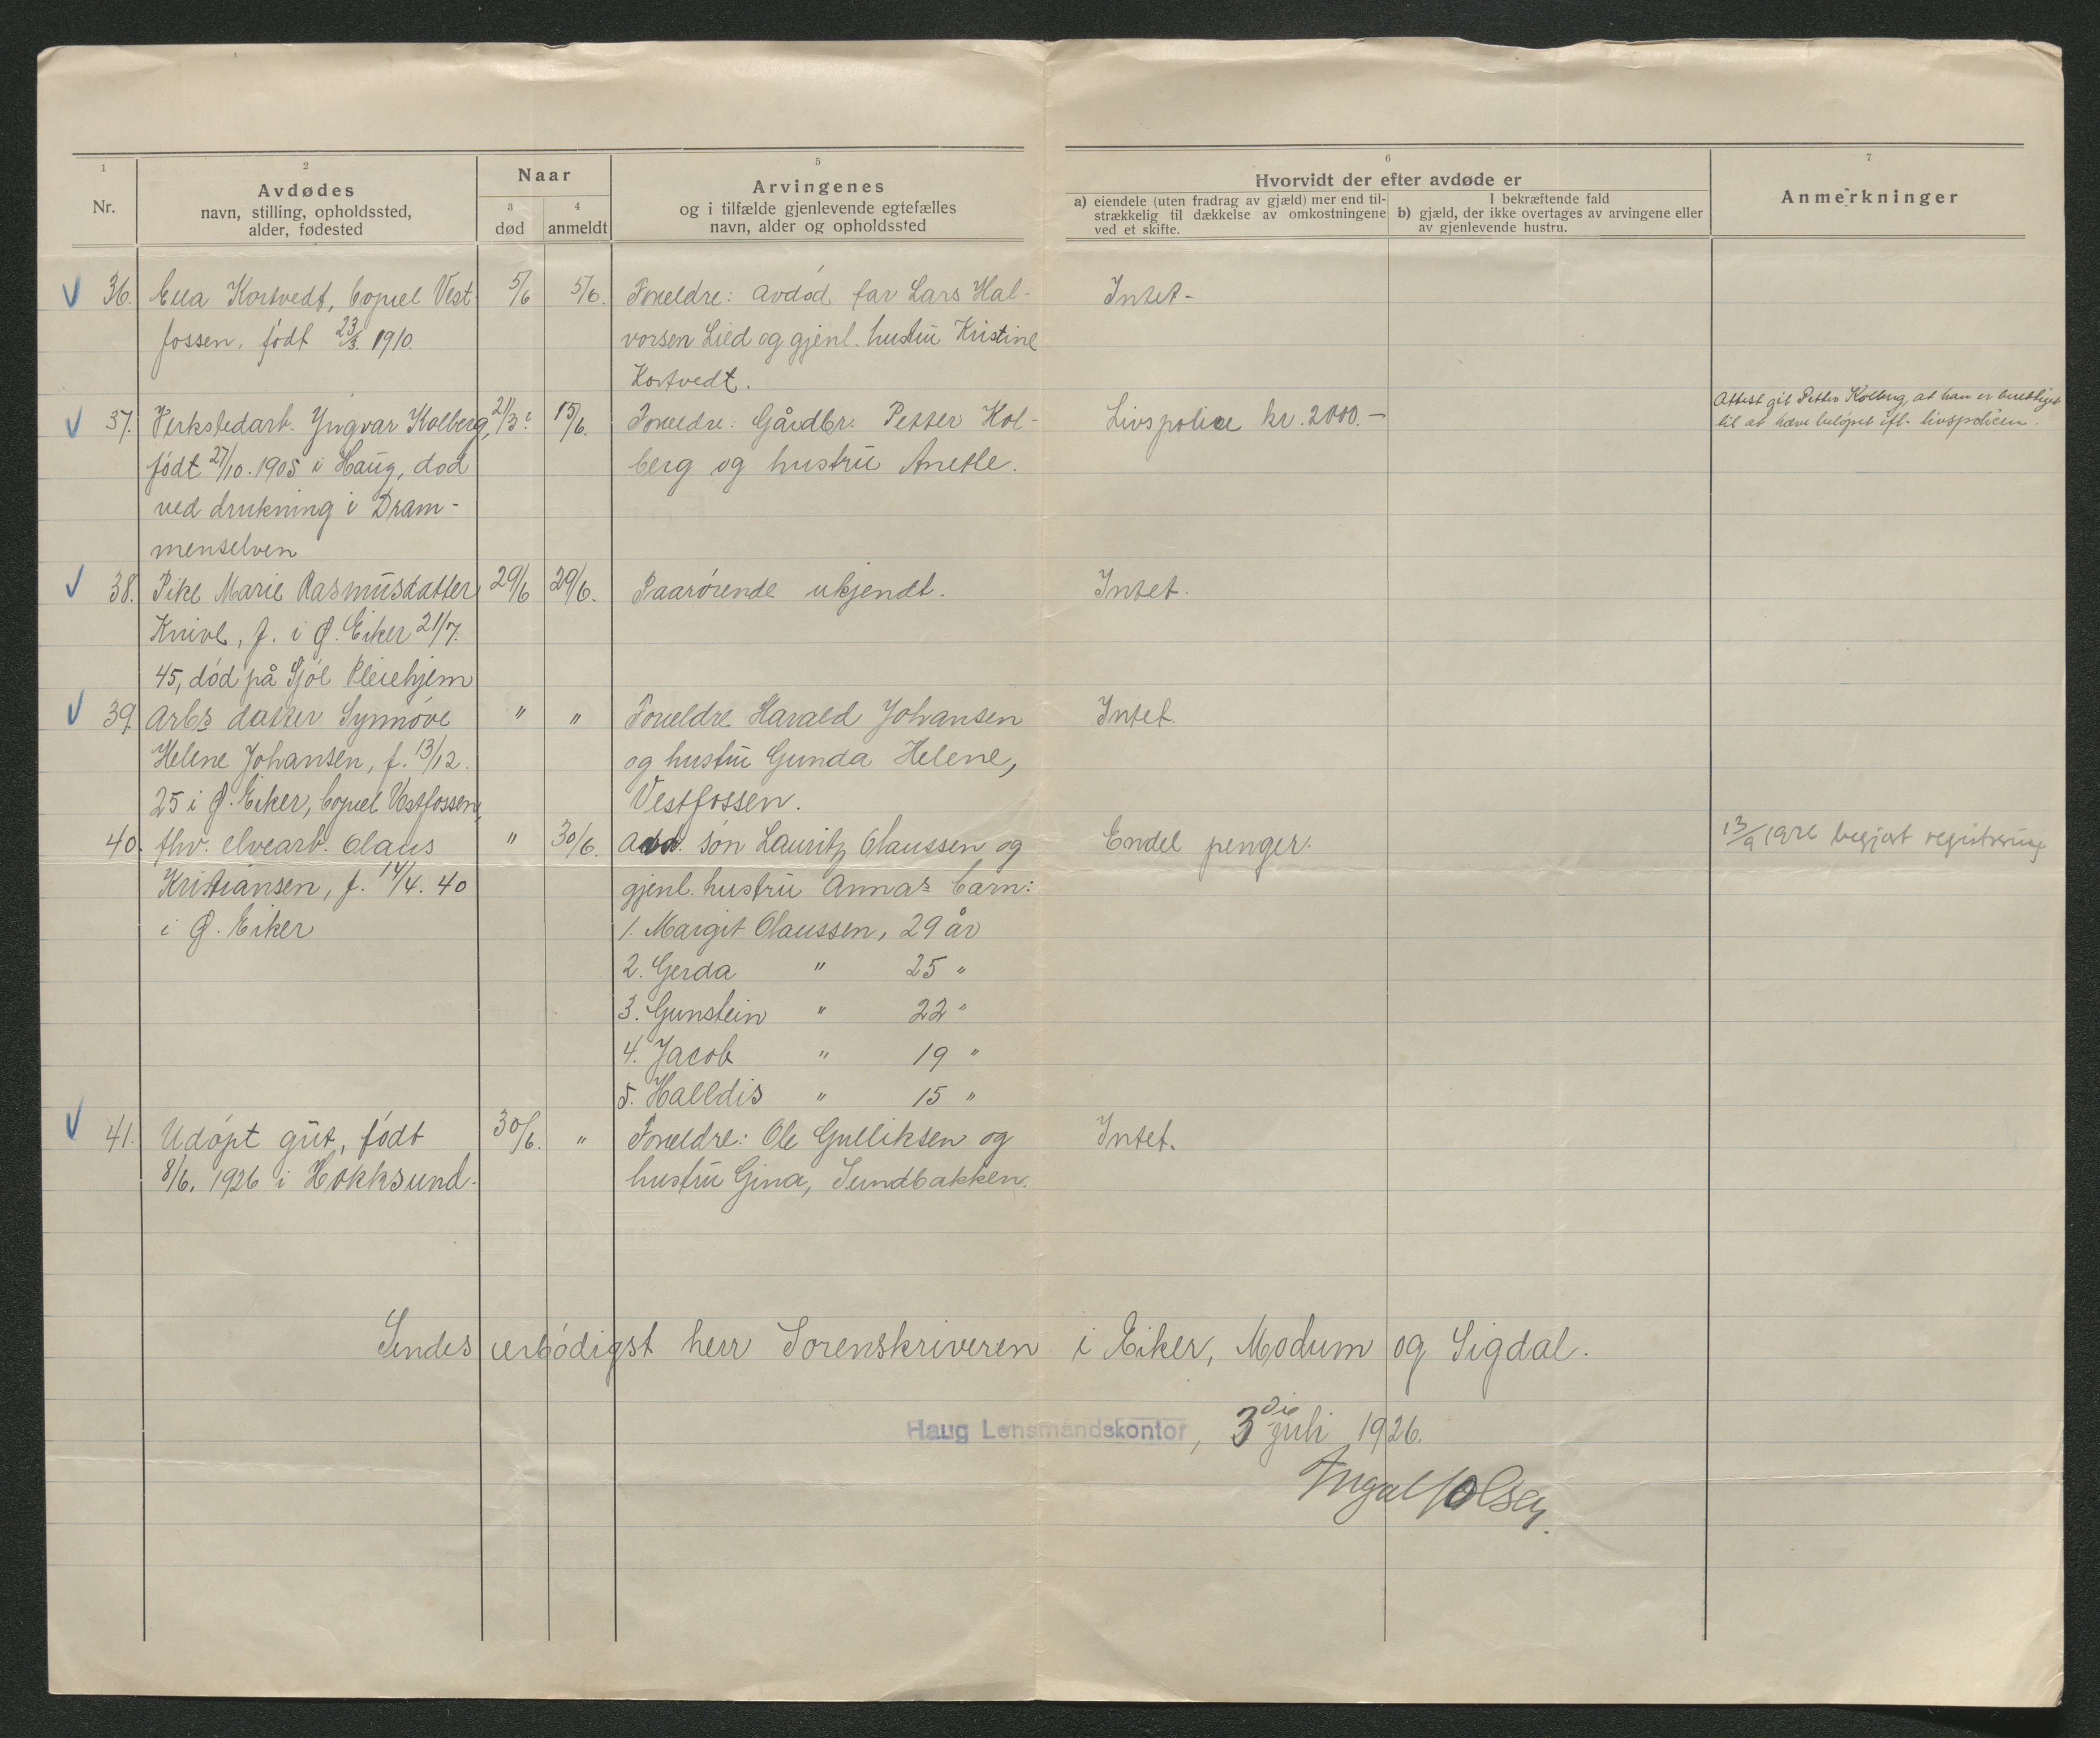 1
Nr.
2
Avdødes
navn, stilling, opholdssted,
alder, fødested
Naar
3
død
4
anmeldt
5
Arvingenes
og i tilfælde gjenlevende egtefælles
navn, alder og opholdssted
6
Hvorvidt der efter avdøde er
a) eiendele (uten fradrag av gjæld) mer end til-
strækkelig til dækkelse av omkostningene
ved et skifte.
I bekræftende fald
b) gjæld, der ikke overtages av arvingene eller
av gjenlevende hustru.
7
Anmerkninger
36. Kortvedt, bopæl Vest- 5/6 5/6. Foreldre: avdød far Lars Hal- Intet-
fossen, født 23/3. 1910. vorsen Lied og gjenl. hustru Kristine
Kortvedt.
37. Verkstedarb. Yngvar Kolberg, 21/3 15/6. Foreldre: Gårdbr. Petter Kol- Livspolice kr. 2000.- Attest git Petter Kolberg, at han er berettiget
til at hæve beløpet ifl. livspolicen.
født 27/10. 1905 i Haug, død berg og hustru Anette.
ved drukning i Dram-
menselven
38. Pike Marie Rasmusdatter 29/6 29/6. Paarørende ukjendt. Intet.
Knive, f. i Ø. Eiker 21/7.
45, død på Sjøl Pleiehjem
39. Arbs datter Synnøve " " Foreldre Harald Johansen Intet.
Helene Johansen, f. 13/12. og hustru Gunda Helene,
25 i Ø. Eiker, bopæl Vestfossen, Vestfossen.
40. fhv. elvearb. Olaus " 30/6. Avd. søn Lauritz Olaussen og Endel penger. 13/9 1926 begjært registrering
Kristiansen, f. 14/4. 40 gjenl. hustru Annas barn:
i Ø. Eiker 1. Margit Olaussen, 29 år
2. Gerda " 25 "
3. Gunstein " 22 "
4. Jacob " 19 "
5. Halldis " 15 "
41. Udøpt gut, født 30/6. " Foreldre: Ole Gulliksen og Intet.
8/6. 1926 i Hokksund. hustru Gina, Sundbakken.
Sendes ærbødigst herr Sorenskriveren i Eiker, Modum og Sigdal.
Haug Lensmandskontor, 3die juli 1926.
Ingolf Olsen.